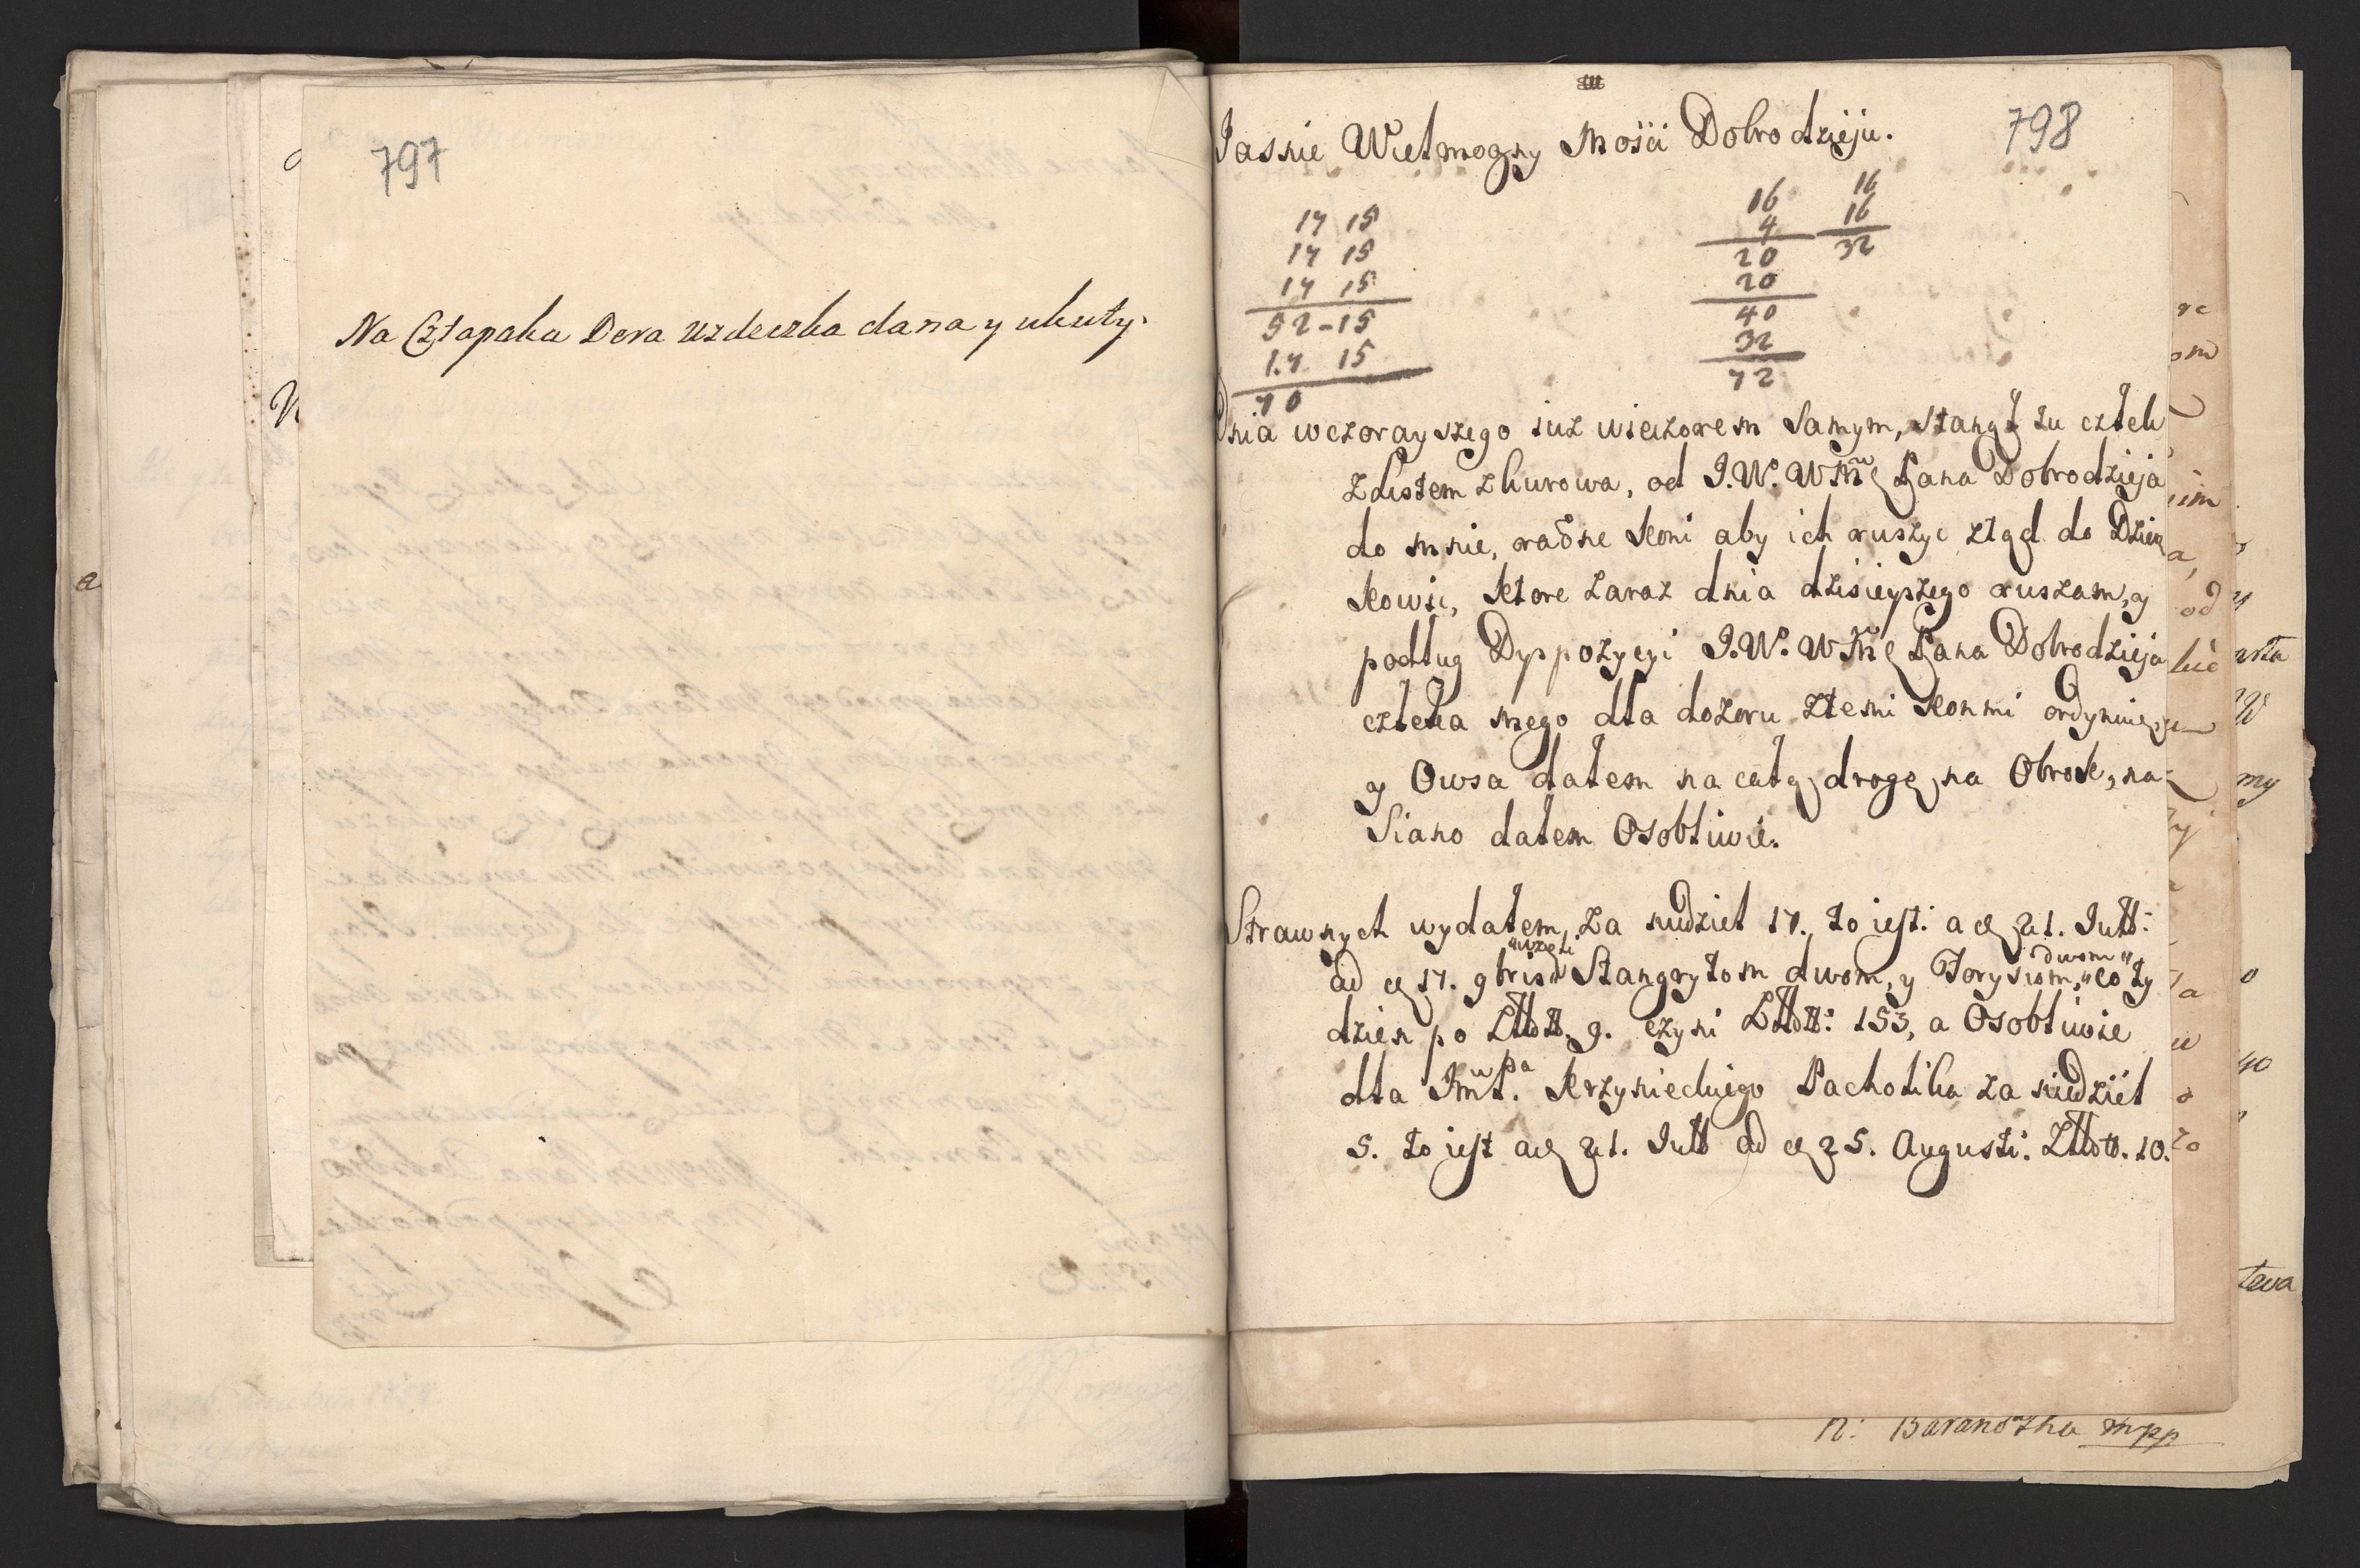 797
Na Cztapaka Dera uzdeczka dana y ukuty.
798
Jasnie Wielmozny Mosci Dobrodzieju.
17 15
17 15
17 15
52-15
17 15
70
16
4
20
20
40
32
72
16
16
32
Dnia wczorayszego iuz wieczorem samym, stanął tu człek
z listem z Kurowa, od J.W. WMć Pana Dobrodzieja
do mnie, koni aby ich ruszyc ztąd do
ktore zaraz dnia dzisieyszego ruszam, y
podług Dyspozycyi J.W. WMć Pana Dobrodzieja
człeka mego dla dozoru ztemi konmi ordynuię,
y Owsa dałem na całą drogę na Obrok, na
Siano dałem Osobliwie.
Strawnych wydałem, za niedziel 17. to iest: a 21. Jull:
ad 17. 9bris wzięli Stangrytom dwom, y Forysiom, dwom co ty
dzien po 9. czyni 153, a Osobliwie
dla Imć Pa. Krzynieckiego Pacholika za niedziel
5. to iest a 21. Jull ad 25. Augusti. 10.
n: Baranozka mpp